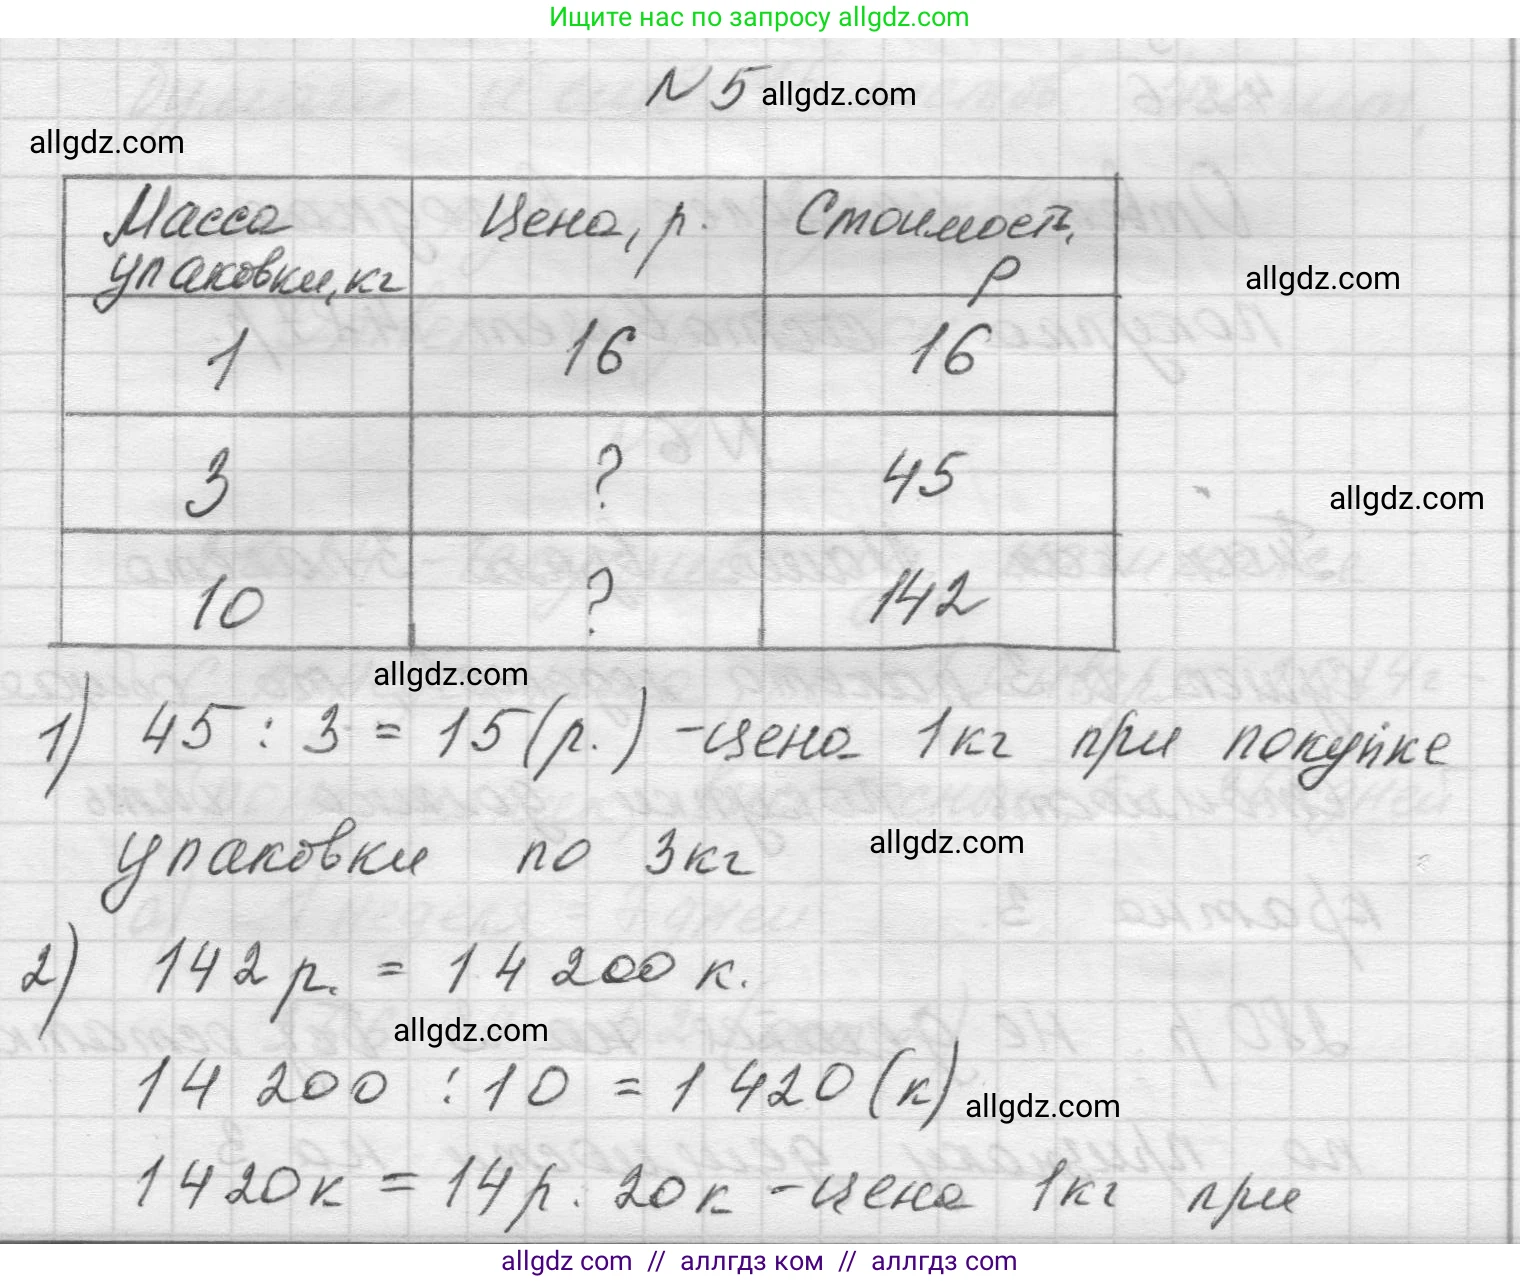 Ищите нас по запросу allgdz.com
N 5 allgdz.com
allgdz.com
Масса упаковки, кг | Цена, р. | Стоимость, р
allgdz.com
1 | 16 | 16
3 | ? | 45
allgdz.com
10 | ? | 142
allgdz.com
1) 45 : 3 = 15 (р.) - цена 1 кг при покупке
упаковки по 3 кг
allgdz.com
2) 142 р. = 14 200 к.
allgdz.com
14 200 : 10 = 1 420 (к)
allgdz.com
1420 к = 14 р. 20 к - цена 1 кг при
allgdz com // аллгдз ком // аллгдз com